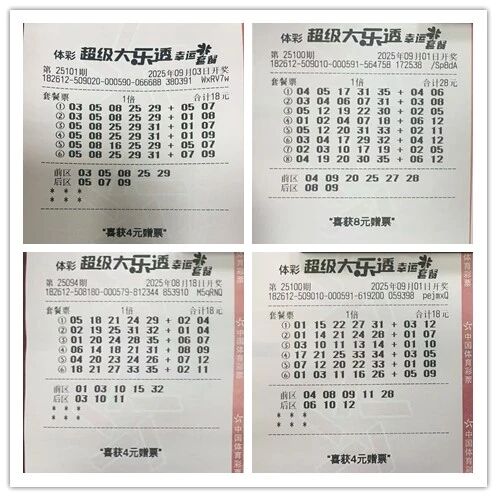 体彩 超级大乐透 幸运八套餐
第 25101期 2025年09月03日开奖
182612-509020-000590-066688 380391 WxRV7w
套餐票 1倍 合计18元
① 03 05 08 25 29 + 05 07
② 03 05 08 25 29 + 01 08
③ 05 08 25 29 31 + 01 07
④ 05 08 25 29 31 + 01 09
⑤ 05 08 16 25 29 + 05 07
⑥ 05 08 25 29 31 + 07 09
前区 03 05 08 25 29
后区 05 07 09
* * *
* * *
"喜获4元赠票"
体彩 超级大乐透 幸运八套餐
第 25100期 2025年09月01日开奖
182612-509010-000591-564758 172538 /Sp8dA
套餐票 1倍 合计28元
① 04 05 17 31 35 + 04 06
② 03 04 06 07 31 + 03 08
③ 05 12 19 22 30 + 02 05
④ 01 02 04 07 18 + 05 06
⑤ 05 12 20 31 33 + 02 11
⑥ 03 04 31 32 35 + 04 11
⑦ 02 03 10 17 19 + 02 05
⑧ 04 19 20 30 35 + 06 12
前区 04 09 20 25 27 28
后区 08 09
"喜获8元赠票"
体彩 超级大乐透 幸运八套餐
第 25094期 2025年08月18日开奖
182612-508180-000579-812344 853910 M5qRNQ
套餐票 1倍 合计18元
① 05 18 21 24 29 + 02 04
② 02 19 25 31 32 + 01 04
③ 01 20 24 28 35 + 06 07
④ 06 14 18 21 31 + 08 09
⑤ 04 20 23 24 26 + 07 12
⑥ 18 21 27 33 35 + 02 11
前区 01 03 10 15 32
后区 03 10 11
* * *
* * *
"喜获4元赠票"
中国体育彩票
体彩 超级大乐透 幸运八套餐
第 25100期 2025年09月01日开奖
182612-509010-000591-619200 059398 pejmxQ
套餐票 1倍 合计18元
① 01 15 22 27 31 + 03 12
② 01 14 21 24 28 + 01 07
③ 03 10 11 13 14 + 01 10
④ 17 21 25 33 34 + 03 05
⑤ 07 12 18 21 31 + 08 12
⑥ 01 03 11 16 26 + 05 09
前区 04 08 09 11 28
后区 06 10 12
* * *
* * *
"喜获4元赠票"
体育彩票
中国体育彩票